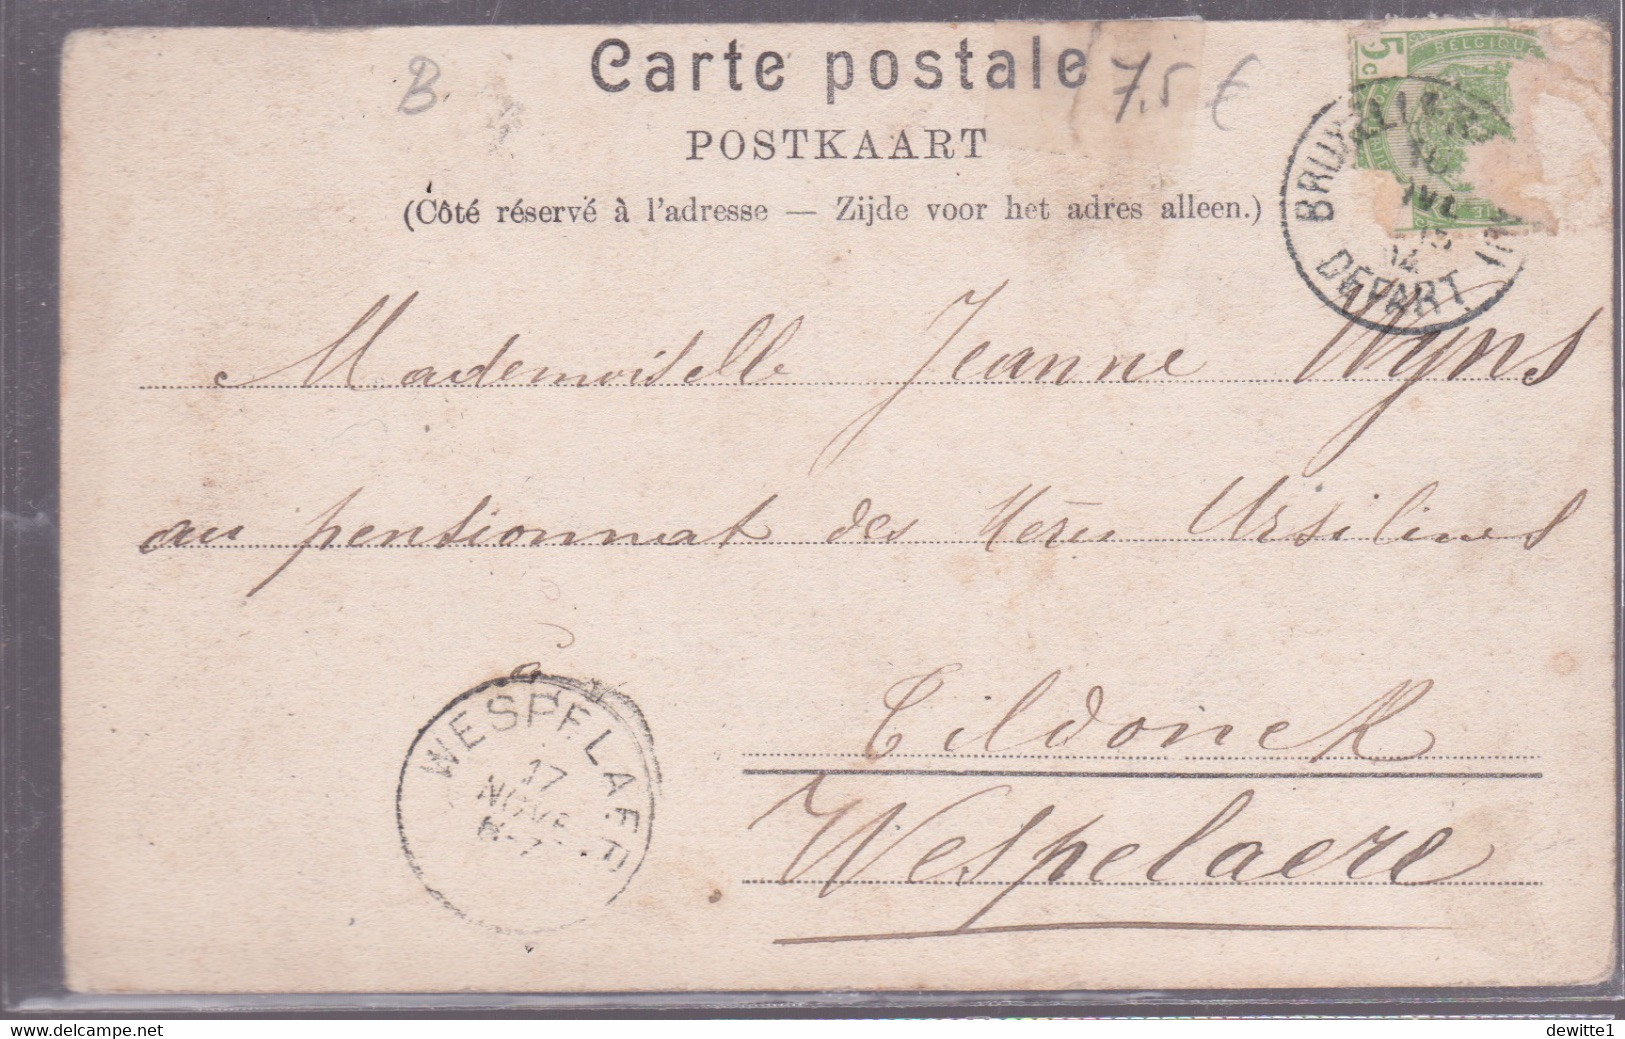 Carte postale
B
7,5 €
POSTKAART
(Côté réservé à l'adresse — Zijde voor het adres alleen.)
5 c
BELGIQU
DEPART
Mademoiselle Jeanne Wyns
au pensionnat des Ursilines
Tildonck
WESPELAER
17
NOVE
Wespelaere
www.delcampe.net
dewitte1